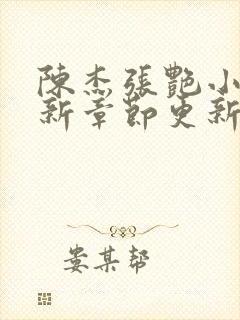 陳杰張艷小
新章節更新
娄某帮